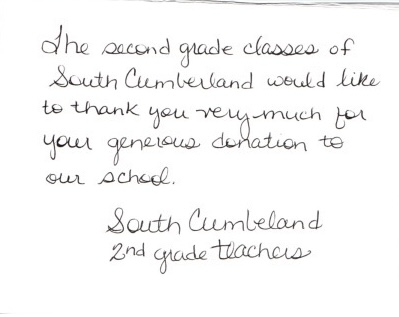 The second grade classes of
South Cumberland would like
to thank you very much for
your generous donation to
our school.
South Cumbeland
2nd grade teachers